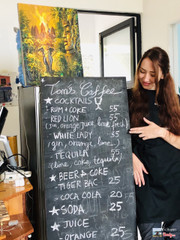 Tom's Coffee
★ COCKTAILS
RUM & COKE 55
RED LION 55
(gin, orange juice, lime fresh)
WHITE LADY 55
(gin, orange, lime...)
TEQUILA 55
(lime, coke, tequila)
★ BEER & COKE
- TIGER BAC 25
COCA COLA 20
★ SODA 25
★ JUICE
- ORANGE 25